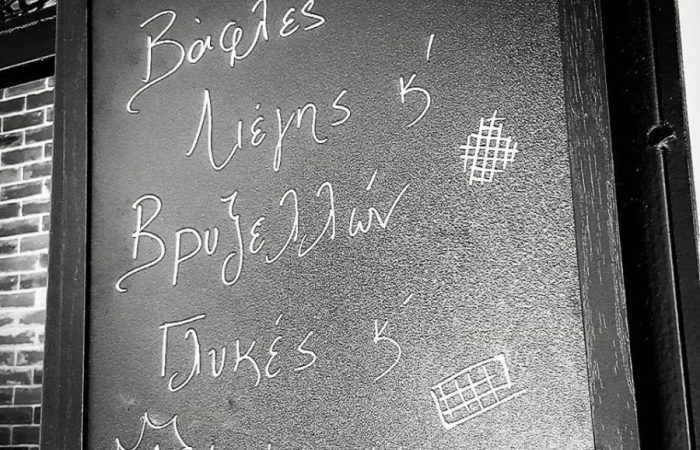 Βάφλες
Λιέγης κ'
Βρυξελλών
Γλυκές κ'